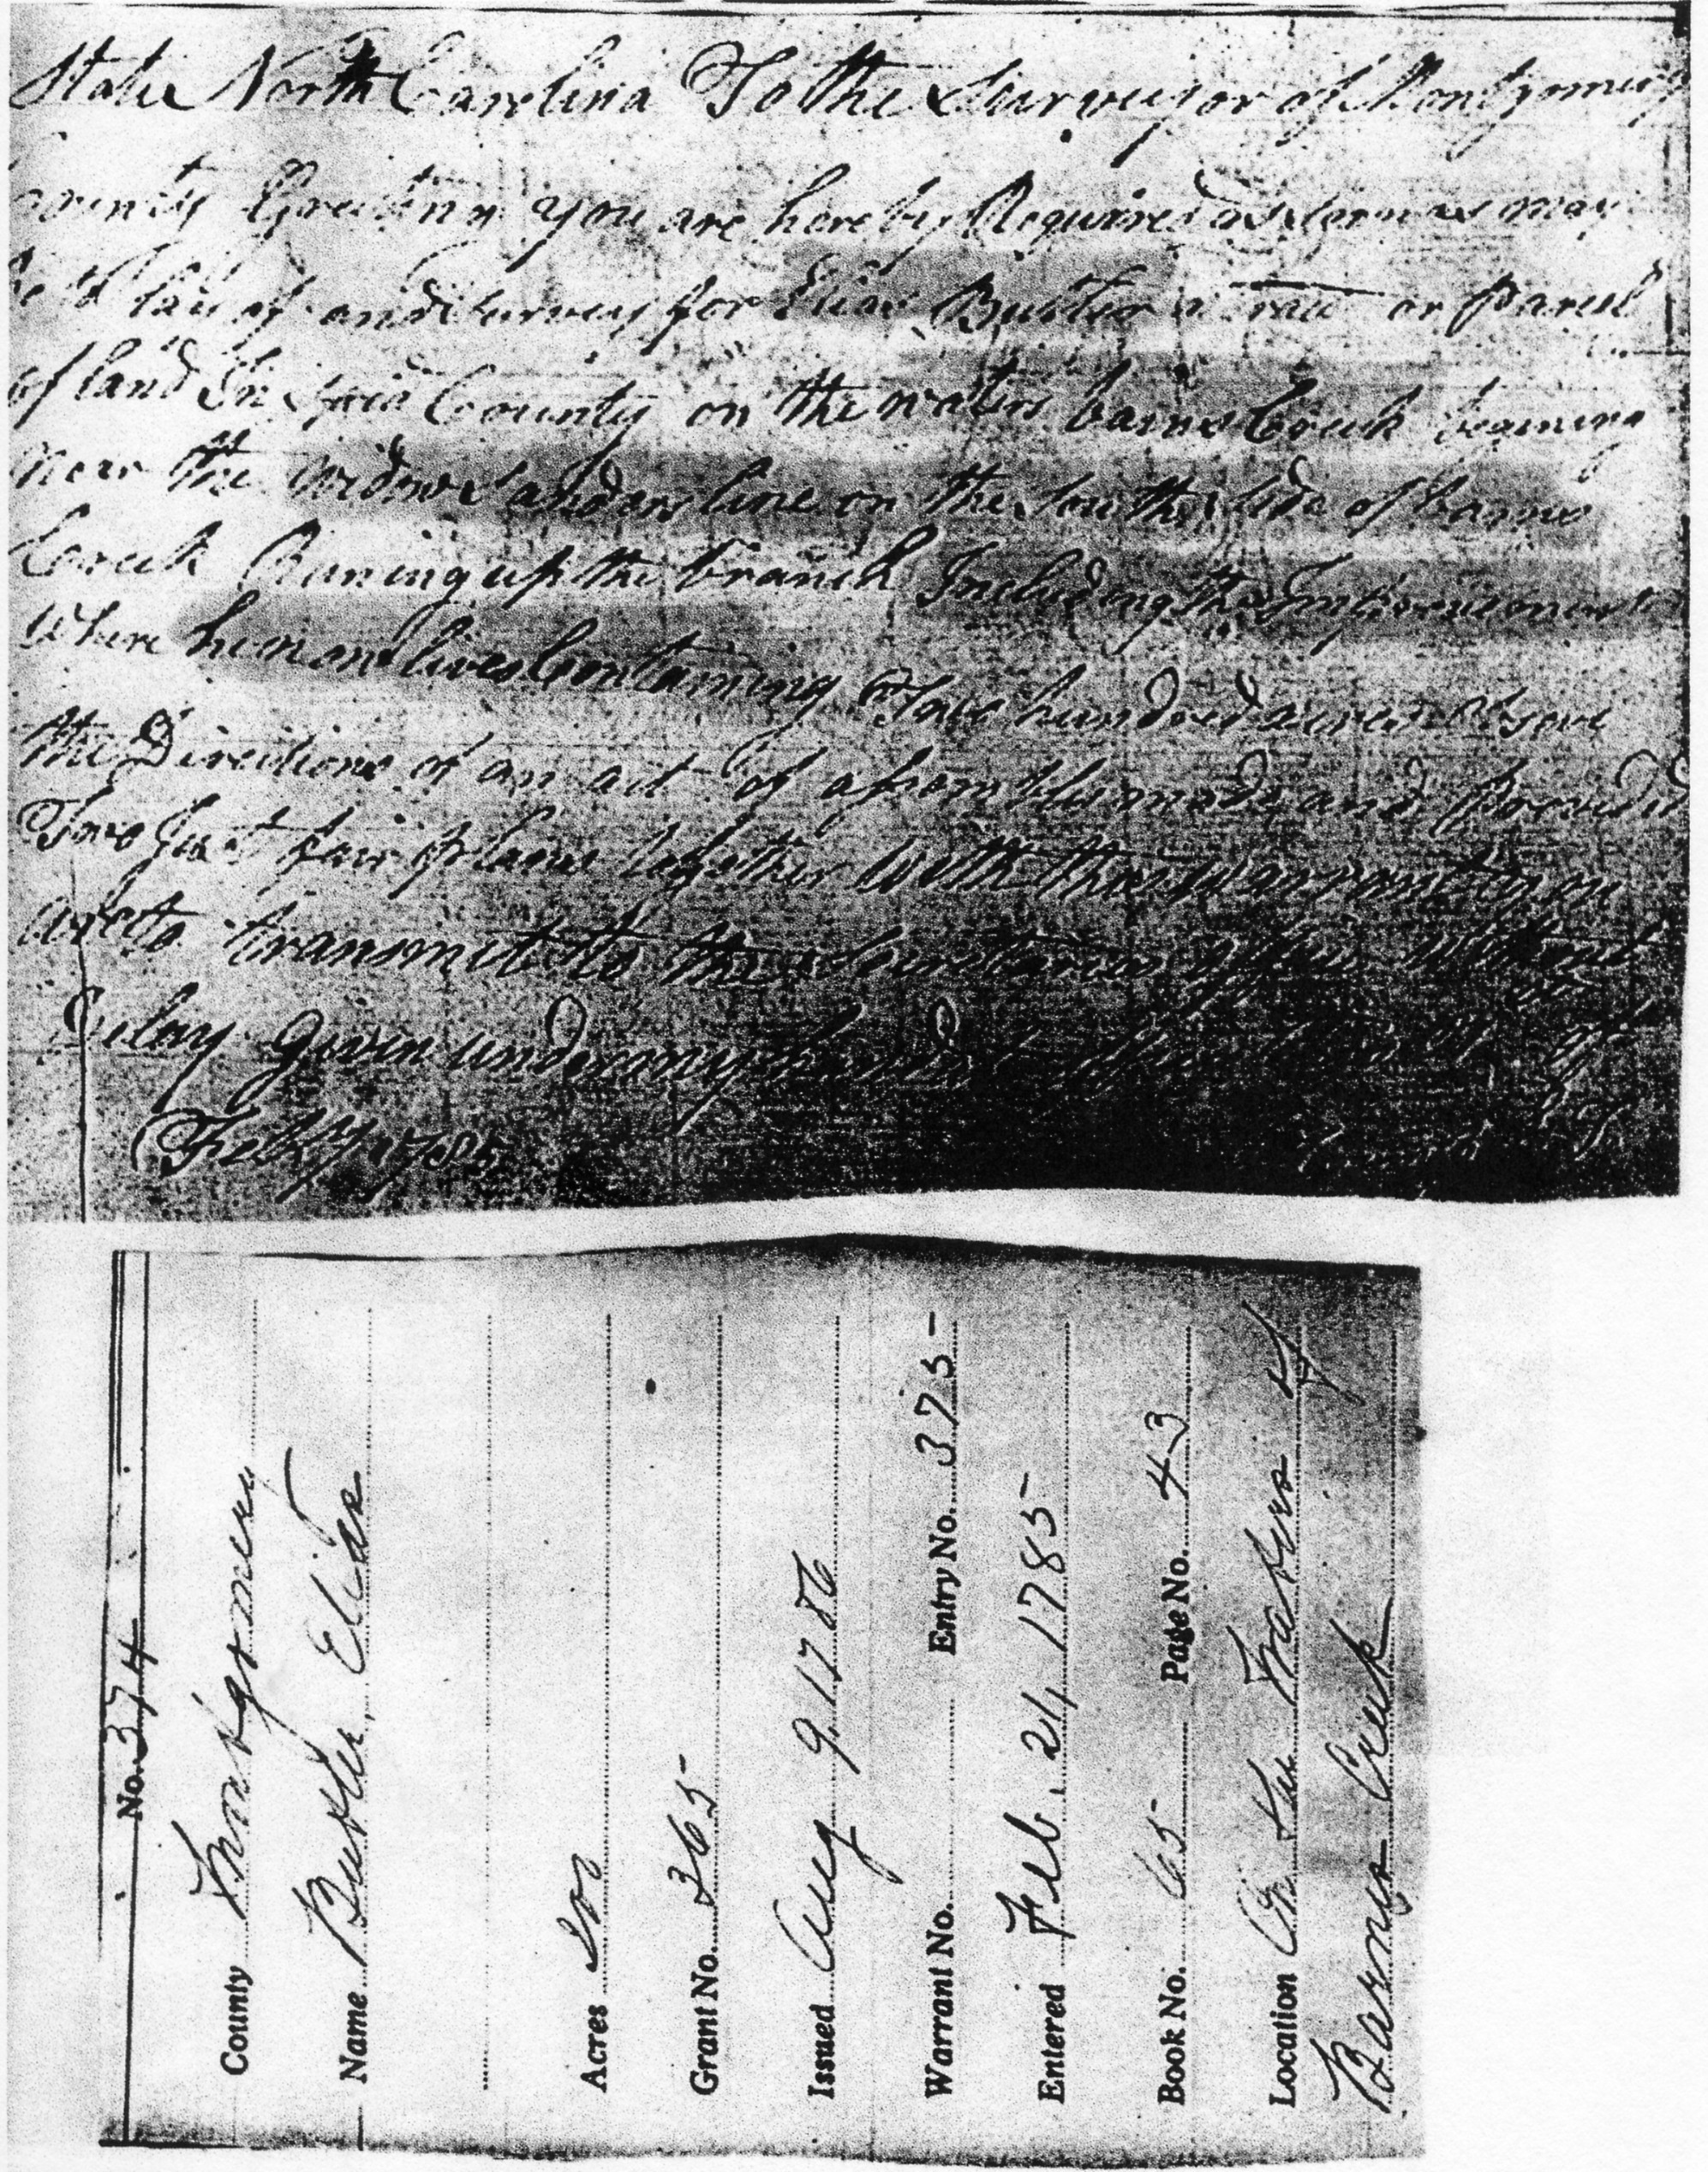 State North Carolina To the Surveyor of Montgomery
County Greetinn you are hereby Required as soon as may
be to lay of and Survey for Elias Buttler a Tract or Parcel
of land In said County on the waters barns Creek begining
near the widow Sanders line on the South Side of barns
Creek Runing up the branch Including the Improvements
Where he now lives Containing Two hundred acres
the Directions of an act of made and Provided
Two Just fair plans together With this warrant you
are to transmit to the Secretaries office without
Delay Given under my hand of
Feby 1785
No. 374
County Montgomery
Name Butler, Elias
Acres 200
Grant No. 365
Issued Aug 9, 1786
Warrant No. Entry No. 375-
Entered Feb. 21, 1785
Book No. 65 Page No. 43
Location On the Waters of
Barnes Creek